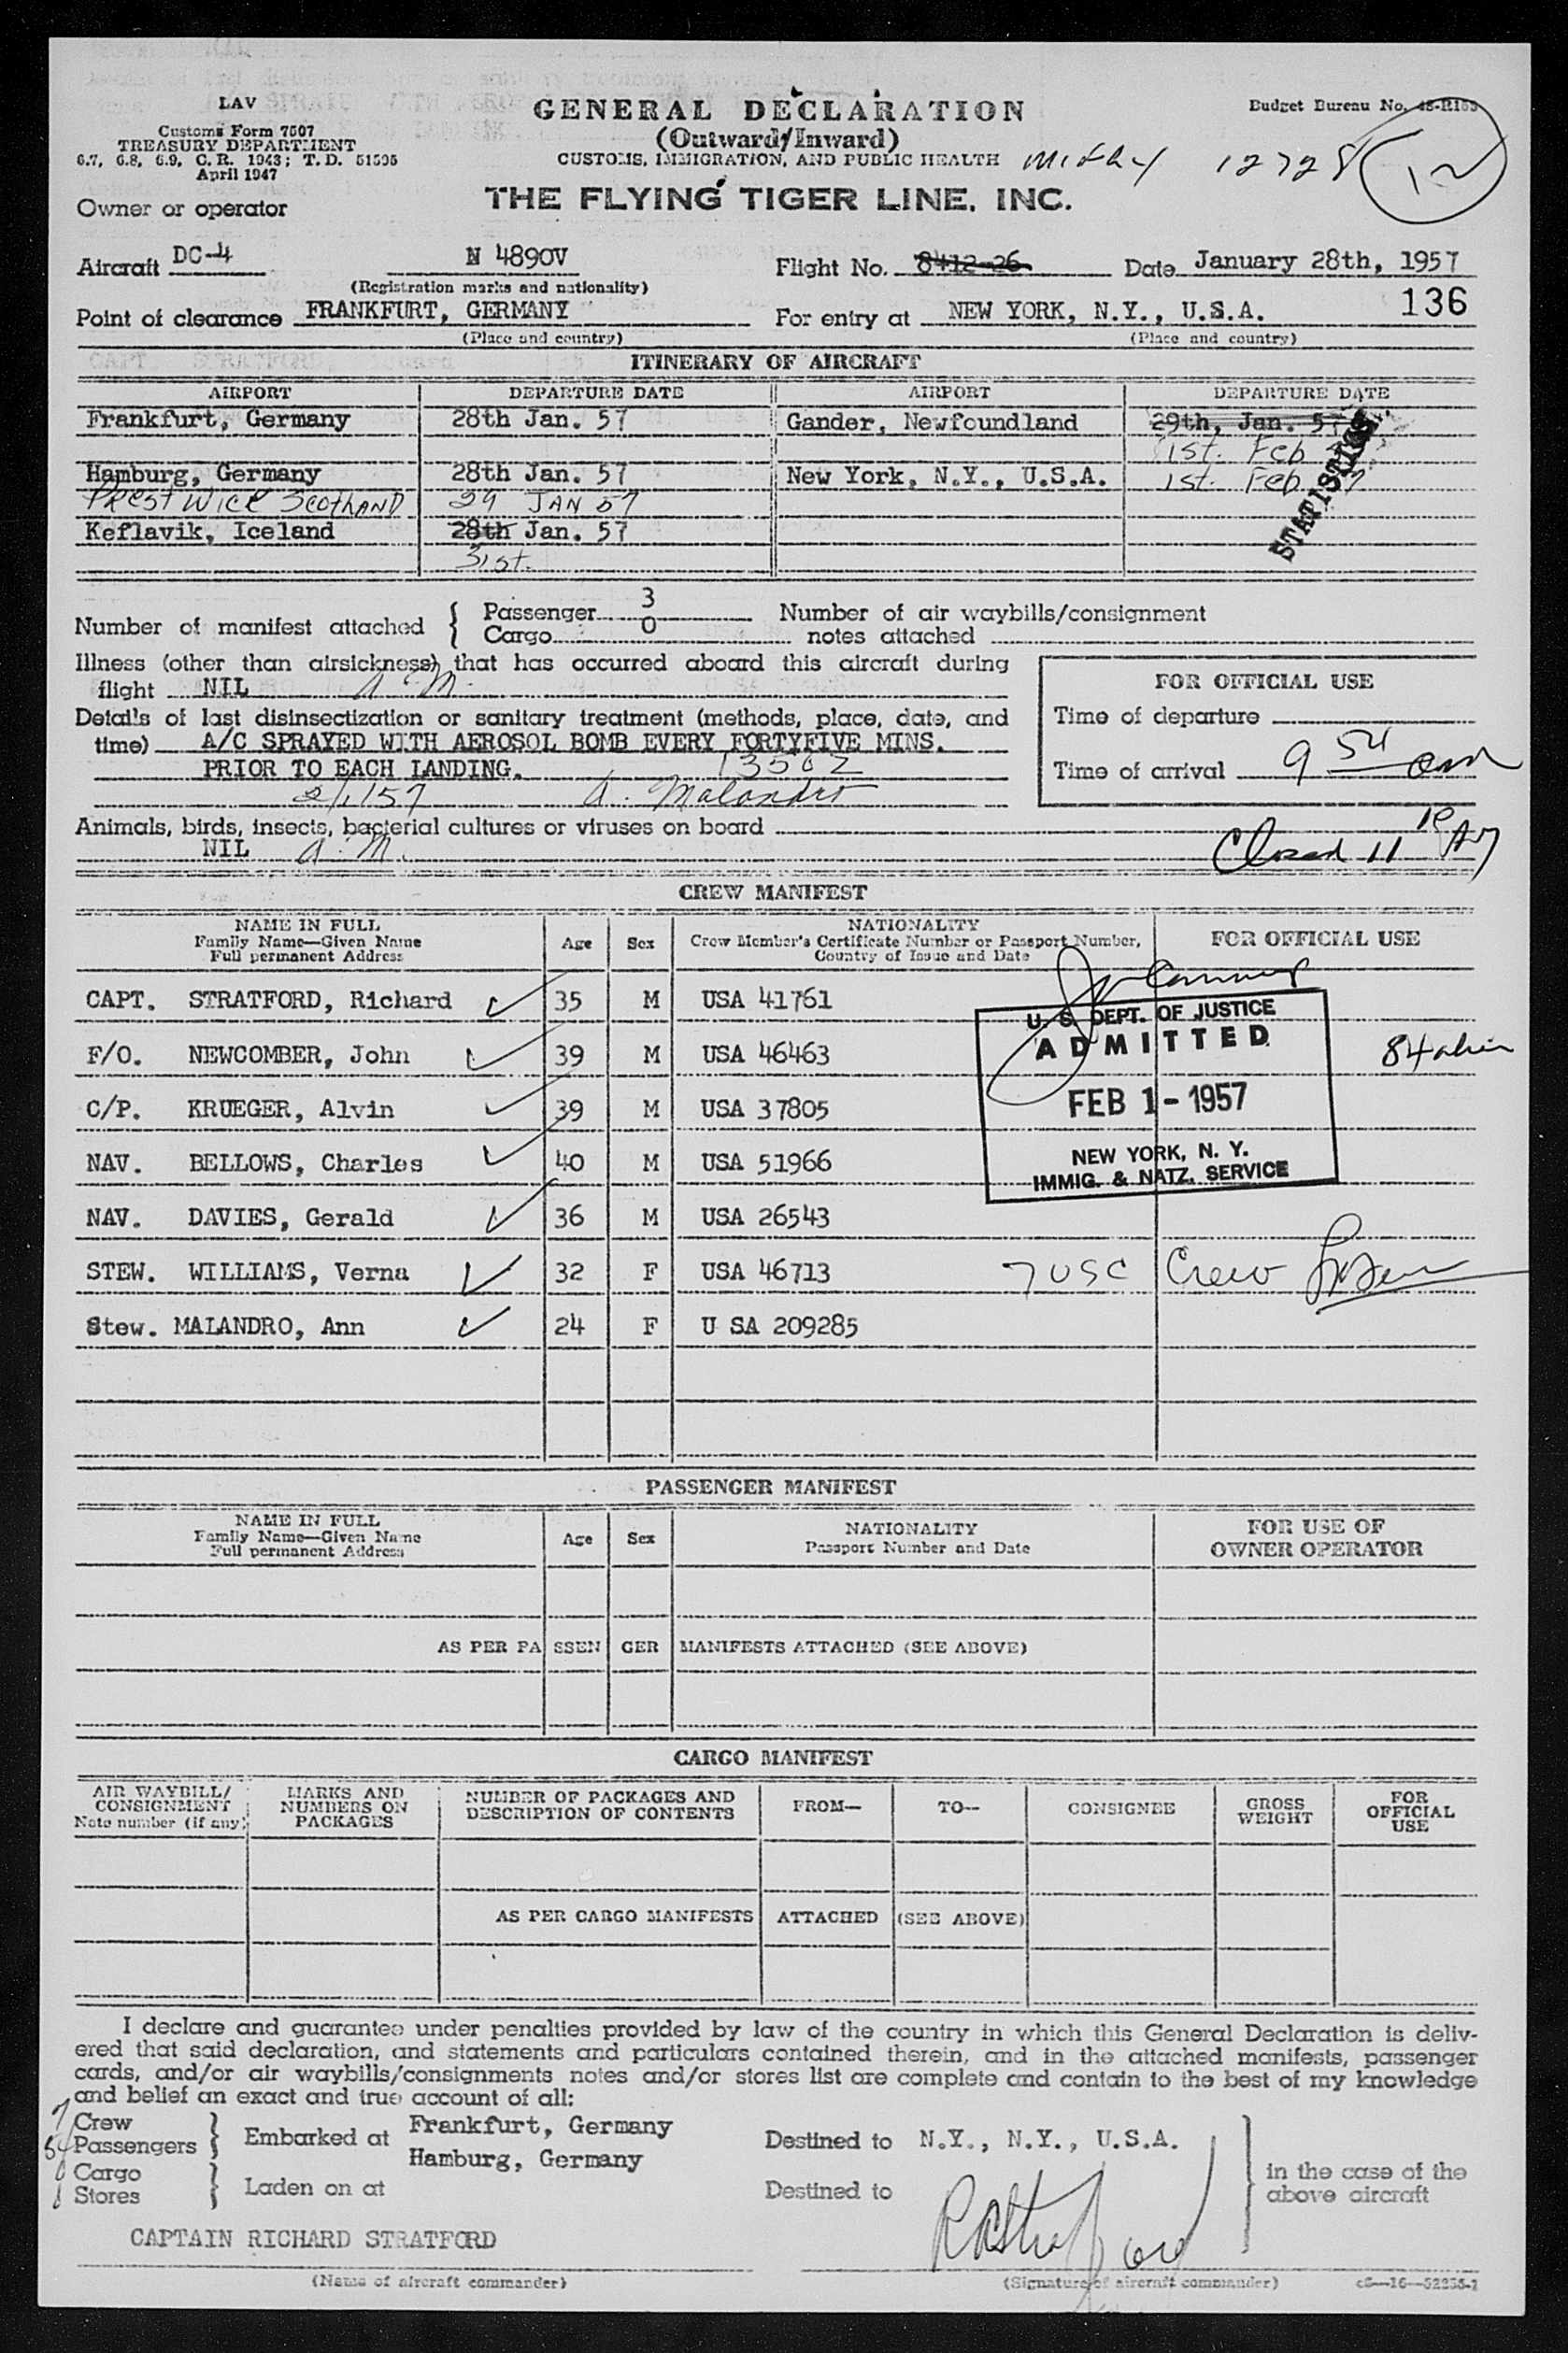 LAV
Customs Form 7507
TREASURY DEPARTMENT
6.7, 6.8, 6.9, C. R. 1943; T. D. 51595
April 1947
GENERAL DECLARATION
(Outward/Inward)
CUSTOMS, IMMIGRATION, AND PUBLIC HEALTH
Budget Bureau No.
12728
12
THE FLYING TIGER LINE, INC.
Owner or operator
Aircraft DC-4 N 4890V Flight No. 8412-26 Date January 28th, 1957
(Registration marks and nationality)
136
Point of clearance FRANKFURT, GERMANY For entry at NEW YORK, N.Y., U.S.A.
(Place and country) (Place and country)
ITINERARY OF AIRCRAFT
AIRPORT DEPARTURE DATE AIRPORT DEPARTURE DATE
Frankfurt, Germany 28th Jan. 57 Gander, Newfoundland 29th, Jan. 57
1st. Feb
Hamburg, Germany 28th Jan. 57 New York, N.Y., U.S.A. 1st. Feb 57
Prestwick Scotland 29 JAN 57
Keflavik, Iceland 28th Jan. 57
31st.
STATISTICS
Number of manifest attached { Passenger 3 Number of air waybills/consignment
Cargo 0 notes attached
Illness (other than airsickness) that has occurred aboard this aircraft during
flight NIL A.M.
FOR OFFICIAL USE
Details of last disinsectization or sanitary treatment (methods, place, date, and
time) A/C SPRAYED WITH AEROSOL BOMB EVERY FORTYFIVE MINS.
PRIOR TO EACH LANDING. 1350Z
2/1/57 A. Malandro
Time of departure
Time of arrival 9 54 am
Animals, birds, insects, bacterial cultures or viruses on board
NIL A.M.
Closed 11 10 AM
CREW MANIFEST
NAME IN FULL
Family Name—Given Name
Full permanent Address
Age Sex
NATIONALITY
Crew Member's Certificate Number or Passport Number,
Country of Issue and Date
FOR OFFICIAL USE
CAPT. STRATFORD, Richard 35 M USA 41761
F/O. NEWCOMBER, John 39 M USA 46463
C/P. KRUEGER, Alvin 39 M USA 37805
NAV. BELLOWS, Charles 40 M USA 51966
NAV. DAVIES, Gerald 36 M USA 26543
STEW. WILLIAMS, Verna 32 F USA 46713 7 USC Crew
Stew. MALANDRO, Ann 24 F U SA 209285
U. S. DEPT. OF JUSTICE
ADMITTED
FEB 1 - 1957
NEW YORK, N. Y.
IMMIG. & NATZ. SERVICE
PASSENGER MANIFEST
NAME IN FULL
Family Name—Given Name
Full permanent Address
Age Sex
NATIONALITY
Passport Number and Date
FOR USE OF
OWNER OPERATOR
AS PER PASSENGER MANIFESTS ATTACHED (SEE ABOVE)
CARGO MANIFEST
AIR WAYBILL/
CONSIGNMENT
Note number (if any)
MARKS AND
NUMBERS ON
PACKAGES
NUMBER OF PACKAGES AND
DESCRIPTION OF CONTENTS
FROM— TO— CONSIGNEE
GROSS
WEIGHT
FOR
OFFICIAL
USE
AS PER CARGO MANIFESTS ATTACHED (SEE ABOVE)
I declare and guarantee under penalties provided by law of the country in which this General Declaration is deliv-
ered that said declaration, and statements and particulars contained therein, and in the attached manifests, passenger
cards, and/or air waybills/consignments notes and/or stores list are complete and contain to the best of my knowledge
and belief an exact and true account of all:
7 Crew
54 Passengers } Embarked at Frankfurt, Germany
Hamburg, Germany
Destined to N.Y., N.Y., U.S.A.
Cargo
Stores } Laden on at
Destined to
in the case of the
above aircraft
CAPTAIN RICHARD STRATFORD
(Name of aircraft commander)
(Signature of aircraft commander)